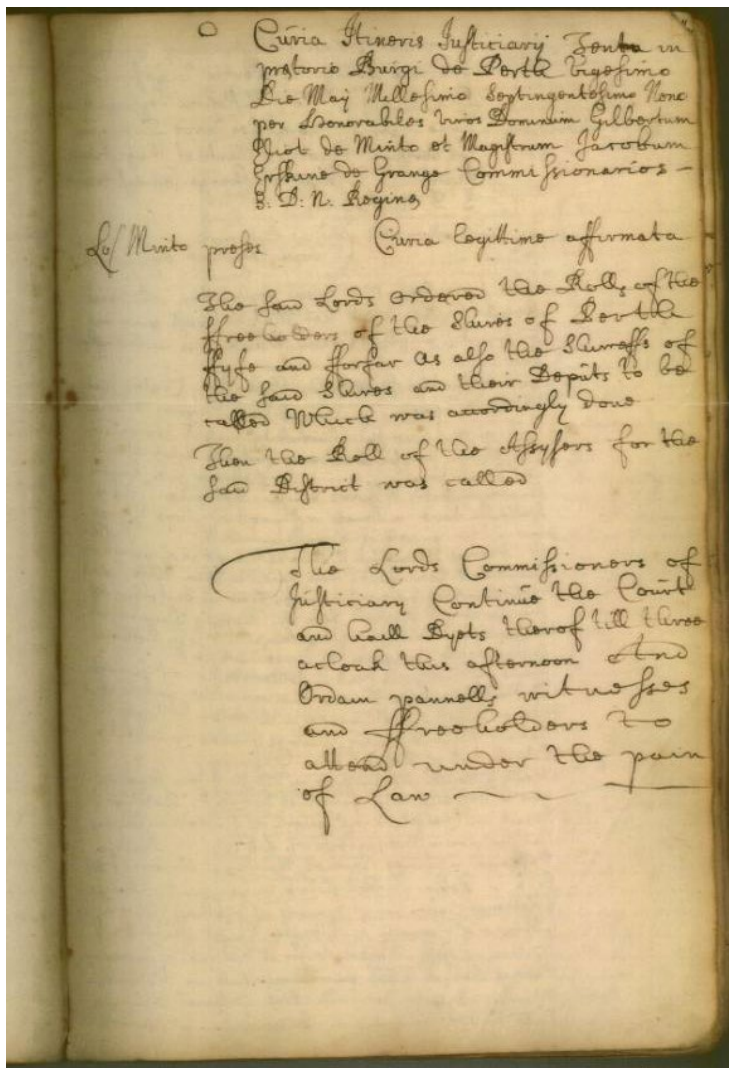 Curia Itineris Justiciarij Tenta in
pretorio Burgi de Perth Vigesimo
Die Maij Millesimo Septingentesimo Nono
per Honorabiles Viros Dominum Gilbertum
Eliot de Minto et Magistrum Jacobum
Erskine de Grange Commissionarios –
S: D: N: Reginæ
Lo/ Minto preses Curia legittime affirmata
The said Lords Ordered the Rolls of the
ffreeholders of the Shires of Perth
ffyfe and fforfar As also the Shireffs of
the said Shires and their Deputs to be
called Which was accordingly done
Then the Roll of the Assysers for the
said District was called
The Lords Commissioners of
Justiciary Continue the Court
and haill Dyets therof till three
acloak this afternoon And
Ordain pannells witnesses
and ffreeholders to
attend under the pain
of Law